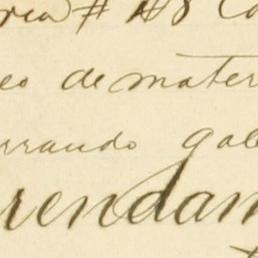 ria # 118 Co
eo de mater
rrando gale
rendam